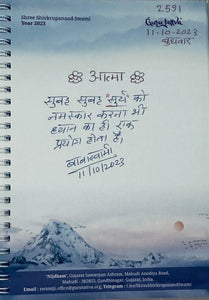 Shree Shivkrupanand Swami
Year 2023
2591
Gurutattva
11-10-2023
बुधवार
आत्मा
सुबह सुबह "सुर्य" को
नमस्कार करना भी
ध्यान का ही एक
प्रयोग होता है।
बाबास्वामी
11/10/2023
"Nijdham", Gujarat Samarpan Ashram, Mahudi Amodiya Road,
Mahudi - 382855, Gandhinagar, Gujarat, India.
Email : swamiji.office@gurutattva.org, Telegram : LiveShreeShivkrupanandSwami